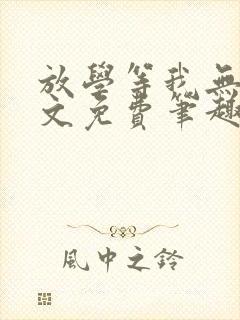 放學等我無
文免費筆趣
風中之鈴